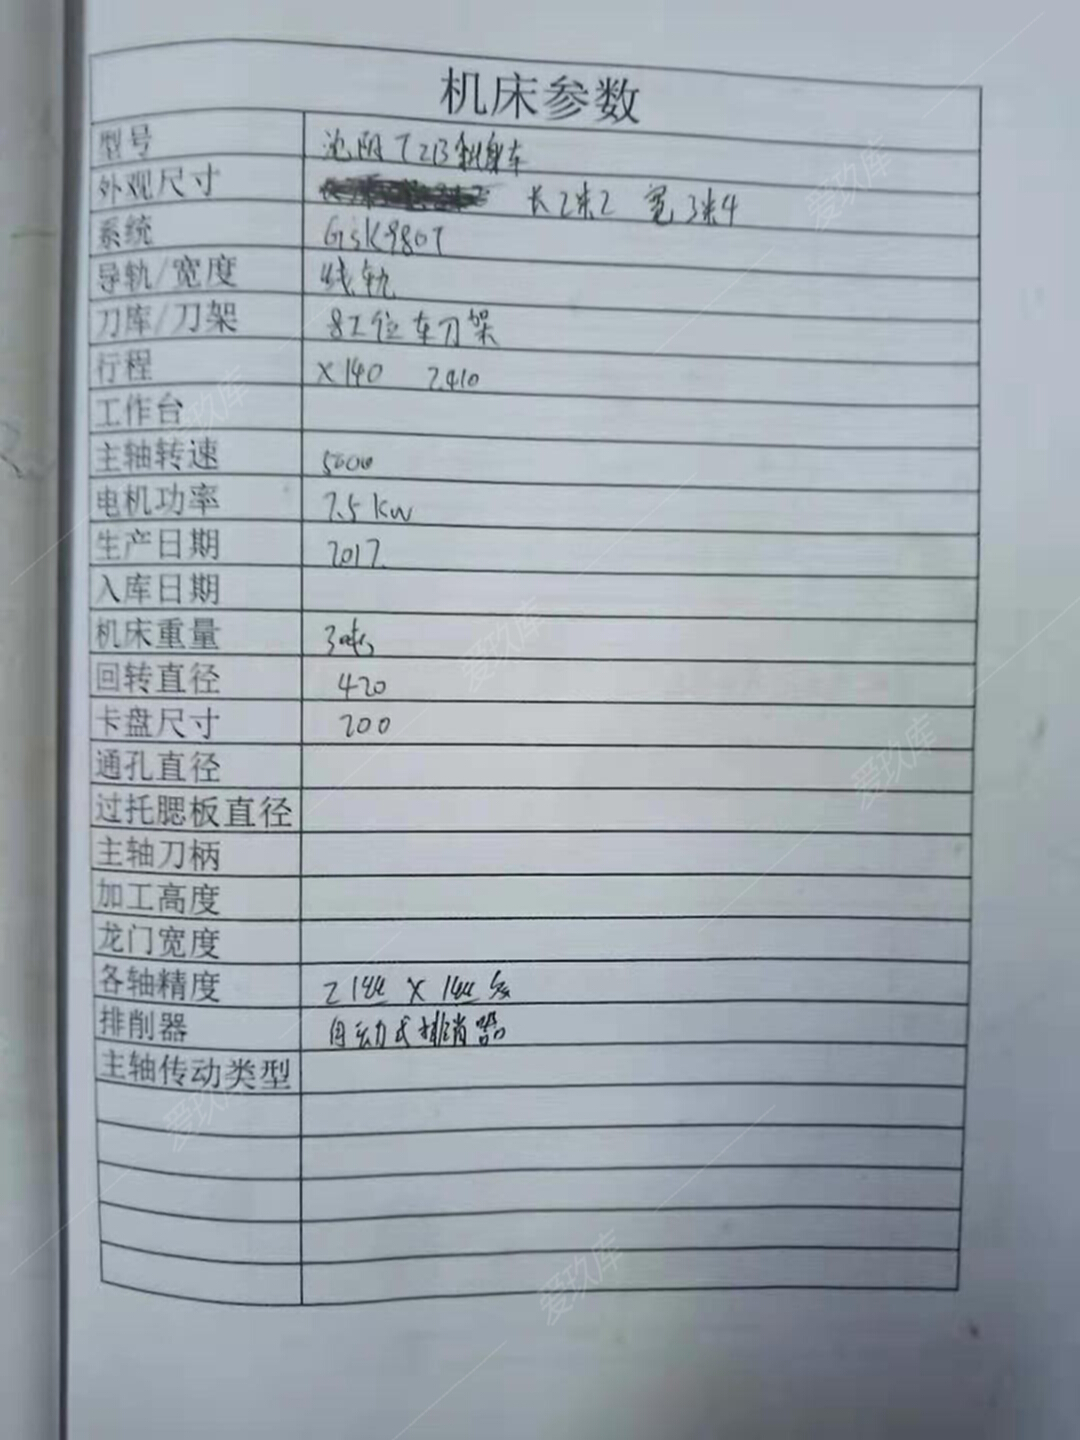 机床参数
型号 沈阴T2B斜身车
外观尺寸 长2米2 宽3米4
系统 GSK980T
导轨/宽度 线轨
刀库/刀架 8工位车刀架
行程 X140 Z410
工作台
主轴转速 5000
电机功率 7.5KW
生产日期 2017
入库日期
机床重量 3吨
回转直径 420
卡盘尺寸 200
通孔直径
过托腮板直径
主轴刀柄
加工高度
龙门宽度
各轴精度 Z1丝 X1丝多
排削器 自动式排消器
主轴传动类型
爱玖库
爱玖库
爱玖库
爱玖库
爱玖库
爱玖库